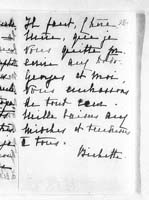 Il faut, chère
Mère, que je
vous quitte pr.
écrire aux
Georges et moi,
vous embrassons
de tout cœur.
Mille baisers aux
mioches et tendresses
à tous.
Bichette